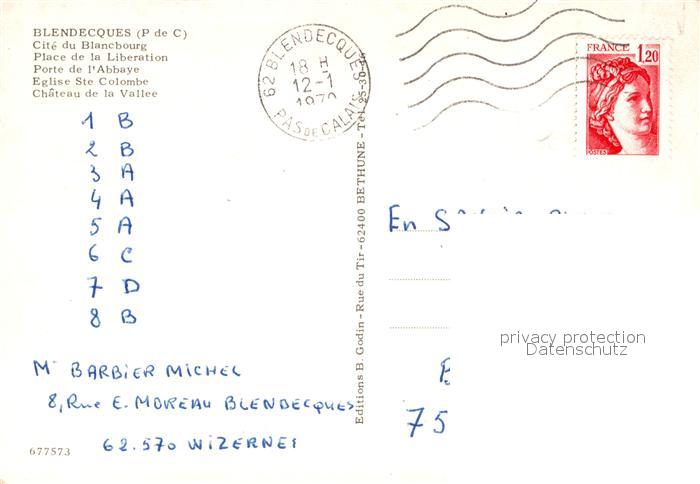 BLENDECQUES (P de C)
Cité du Blancbourg
Place de la Liberation
Porte de l'Abbaye
Eglise Ste Colombe
Château de la Vallee
62 BLENDECQUES
18 H
12-1
PAS DE CALAIS
FRANCE
1,20
POSTES
1 B
2 B
3 A
4 A
5 A
6 C
7 D
8 B
Mr BARBIER MICHEL
8, Rue E. MOREAU BLENDECQUES
62.570 WIZERNES
677573
Editions B. Godin - Rue du Tir - 62400 BETHUNE - Tél
En
75
privacy protection
Datenschutz